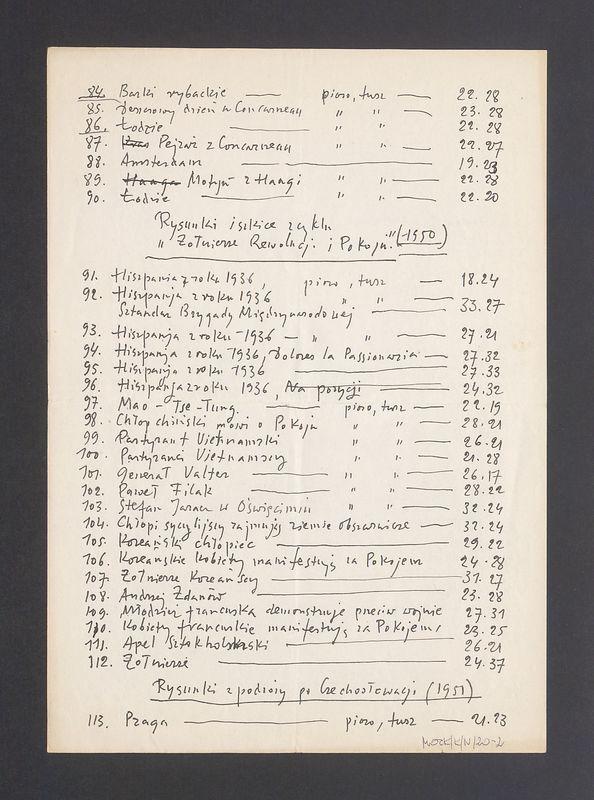 84. Barki rybackie — pióro, tusz — 22.28
85. Deszczowy dzień w Concarneau " " — 23.28
86. Łodzie — " " — 22.28
87. Pejzaż z Concarneau " " — 22.27
88. Amsterdam — 19.23
89. Haaga Motyw z Haagi " " — 22.28
90. Łodzie — " " — 22.20
Rysunki i szkice z cyklu
" Żołnierze Rewolucji i Pokoju." (-1950)
91. Hiszpania z roku 1936, pióro, tusz — 18.24
92. Hiszpanja z roku 1936 " "
Sztandar Brygady Międzynarodowej — 33.27
93. Hiszpanja z roku 1936 — " " — 27.21
94. Hiszpanja z roku 1936, Dolores la Passionaria — 27.32
95. Hiszpanja z roku 1936 — 27.33
96. Hiszpanja z roku 1936, Na pozycji — 24.32
97. Mao - Tse-Tung. — pióro, tusz — 22.19
98. Chłop chiński mówi o Pokoju " " — 28.21
99. Partyzant Vietnamski " " — 26.21
100. Partyzanci Vietnamscy " " — 21.28
101. Generał Valter — " " — 26.17
102. Paweł Filak — " " — 28.22
103. Stefan Jaracz w Oświęcimiu " " — 32.24
104. Chłopi sycylijscy zajmują ziemie obszarnicze — 32.24
105. Koreański chłopiec — 29.22
106. Koreańskie kobiety manifestują za Pokojem 24.28
107. Żołnierze Koreańscy — 31.27
108. Andrzej Żdanów — 23.28
109. Młodzież francuska demonstruje przeciw wojnie 27.31
110. Kobiety francuskie manifestują za Pokojem, 23.25
111. Apel Sztokholmski — 26.21
112. Żołnierze — 24.37
Rysunki z podróży po Czechosłowacji (1951)
113. Praga — pióro, tusz — 21.23